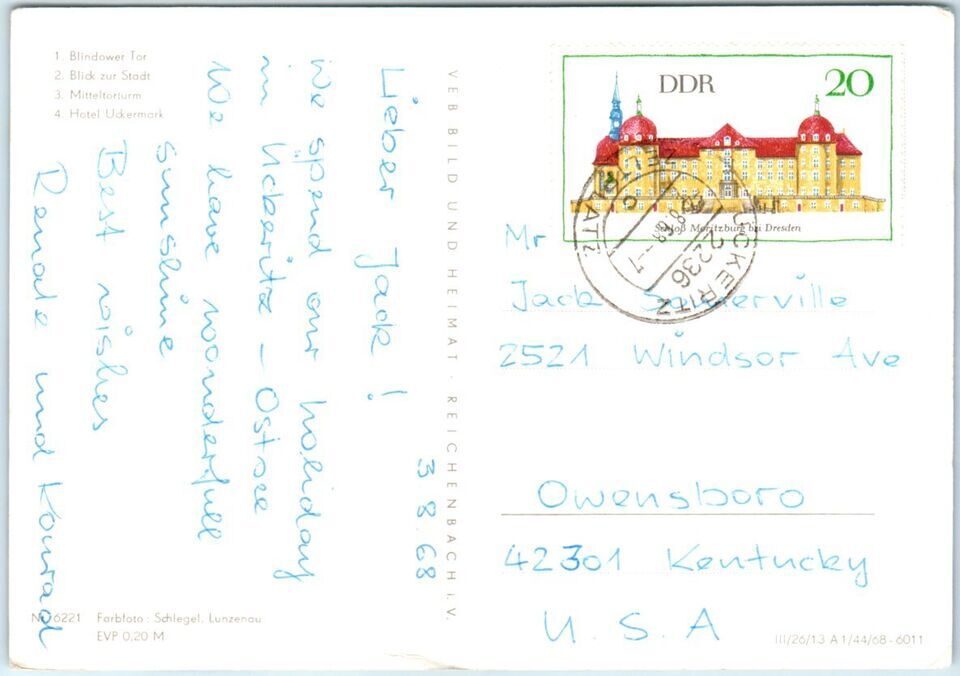 1. Blindower Tor
2. Blick zur Stadt
3. Mitteltorturm
4. Hotel Uckermark
3 8.68
Lieber Jack !
We spend our holiday
in Uckeritz – Ostsee
We have woonderfull
sunshine
Best wishes
Renate und Konrad
VEB BILD UND HEIMAT · REICHENBACH i. V.
DDR 20
Schloß Moritzburg bei Dresden
2236
ÜCKERITZ
Mr
Jack Somerville
2521 Windsor Ave
Owensboro
42301 Kentucky
U. S. A
6221 Farbfoto: Schlegel, Lunzenau
EVP 0,20 M
III/26/13 A 1/44/68 - 6011